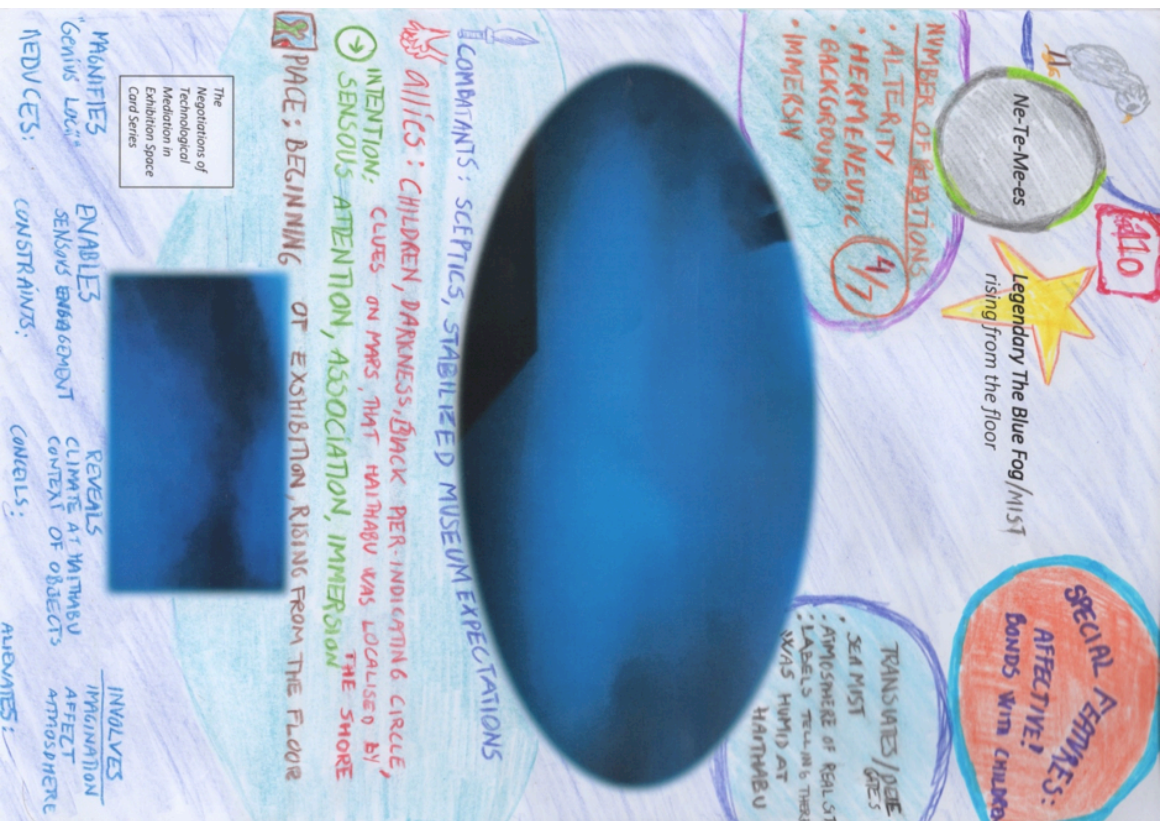 110
Ne-Te-Me-es
Legendary The Blue Fog/MIST
rising from the floor
NUMBER OF RELATIONS
• ALTERITY
• HERMENEUTIC
• BACKGROUND
• IMMERSIV
4/7
SPECIAL FEATURES:
AFFECTIVE!
BONDS WITH CHILDREN
TRANSLATES/DELE
GATES
• SEA MIST
• ATMOSPHERE OF REAL SIT
• LABELS TELLING THERE
WAS HUMID AT
HAITHABU
COMBATANTS: SCEPTICS, STABILIZED MUSEUM EXPECTATIONS
allies: CHILDREN, DARKNESS, BLACK PIER-INDICATING CIRCLE,
CLUES ON MAPS, THAT HAITHABU WAS LOCALISED BY
THE SHORE
INTENTION:
SENSOUS ATTENTION, ASSOCIATION, IMMERSION
PLACE: BEGINNING OF EXSHIBITION, RISING FROM THE FLOOR
The
Negotiations of
Technological
Mediation in
Exhibition Space
Card Series
MAGNIFIES
"GENIUS LOCII"
REDUCES:
ENABLES
SENSOUS ENGAGEMENT
CONSTRAINTS:
REVEALS
CLIMATE AT HAITHABU
CONTEXT OF OBJECTS
CONCEILS:
INVOLVES
IMAGINATION
AFFECT
ATMOSPHERE
ALIENATES: